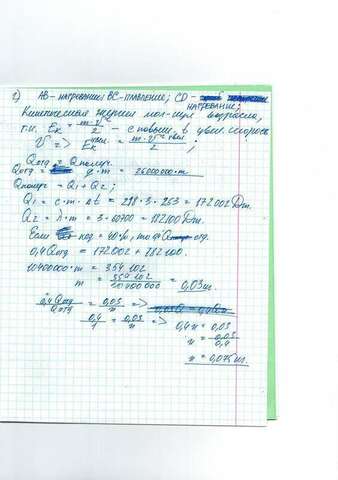 2) АВ - нагревание; ВС - плавление; CD -
нагревание;
Кинетическая энергия мол-кул возрастает,
т.к. Eк = m·v²/2 - с повыш. t увел. скорость
V => Eк = m·v²/2 ;
Qотд = Qполуч.
Qотд = q·m = 26000000·m
Qполуч = Q1 + Q2 ;
Q1 = c·m·Δt = 298·3·253 = 172002 Дж.
Q2 = λ·m = 3· = 182100 Дж.
Если кпд = 40%, то отд.
0,4Qотд = 172002 + 182100.
10400000·m = 354102
m = 354102/10400000 = 0,03кг.
0,4Qотд/Qотд = 0,03/x =>
0,4/1 = 0,03/x => 0,4x = 0,03
x = 0,03/0,4
x = 0,075кг.